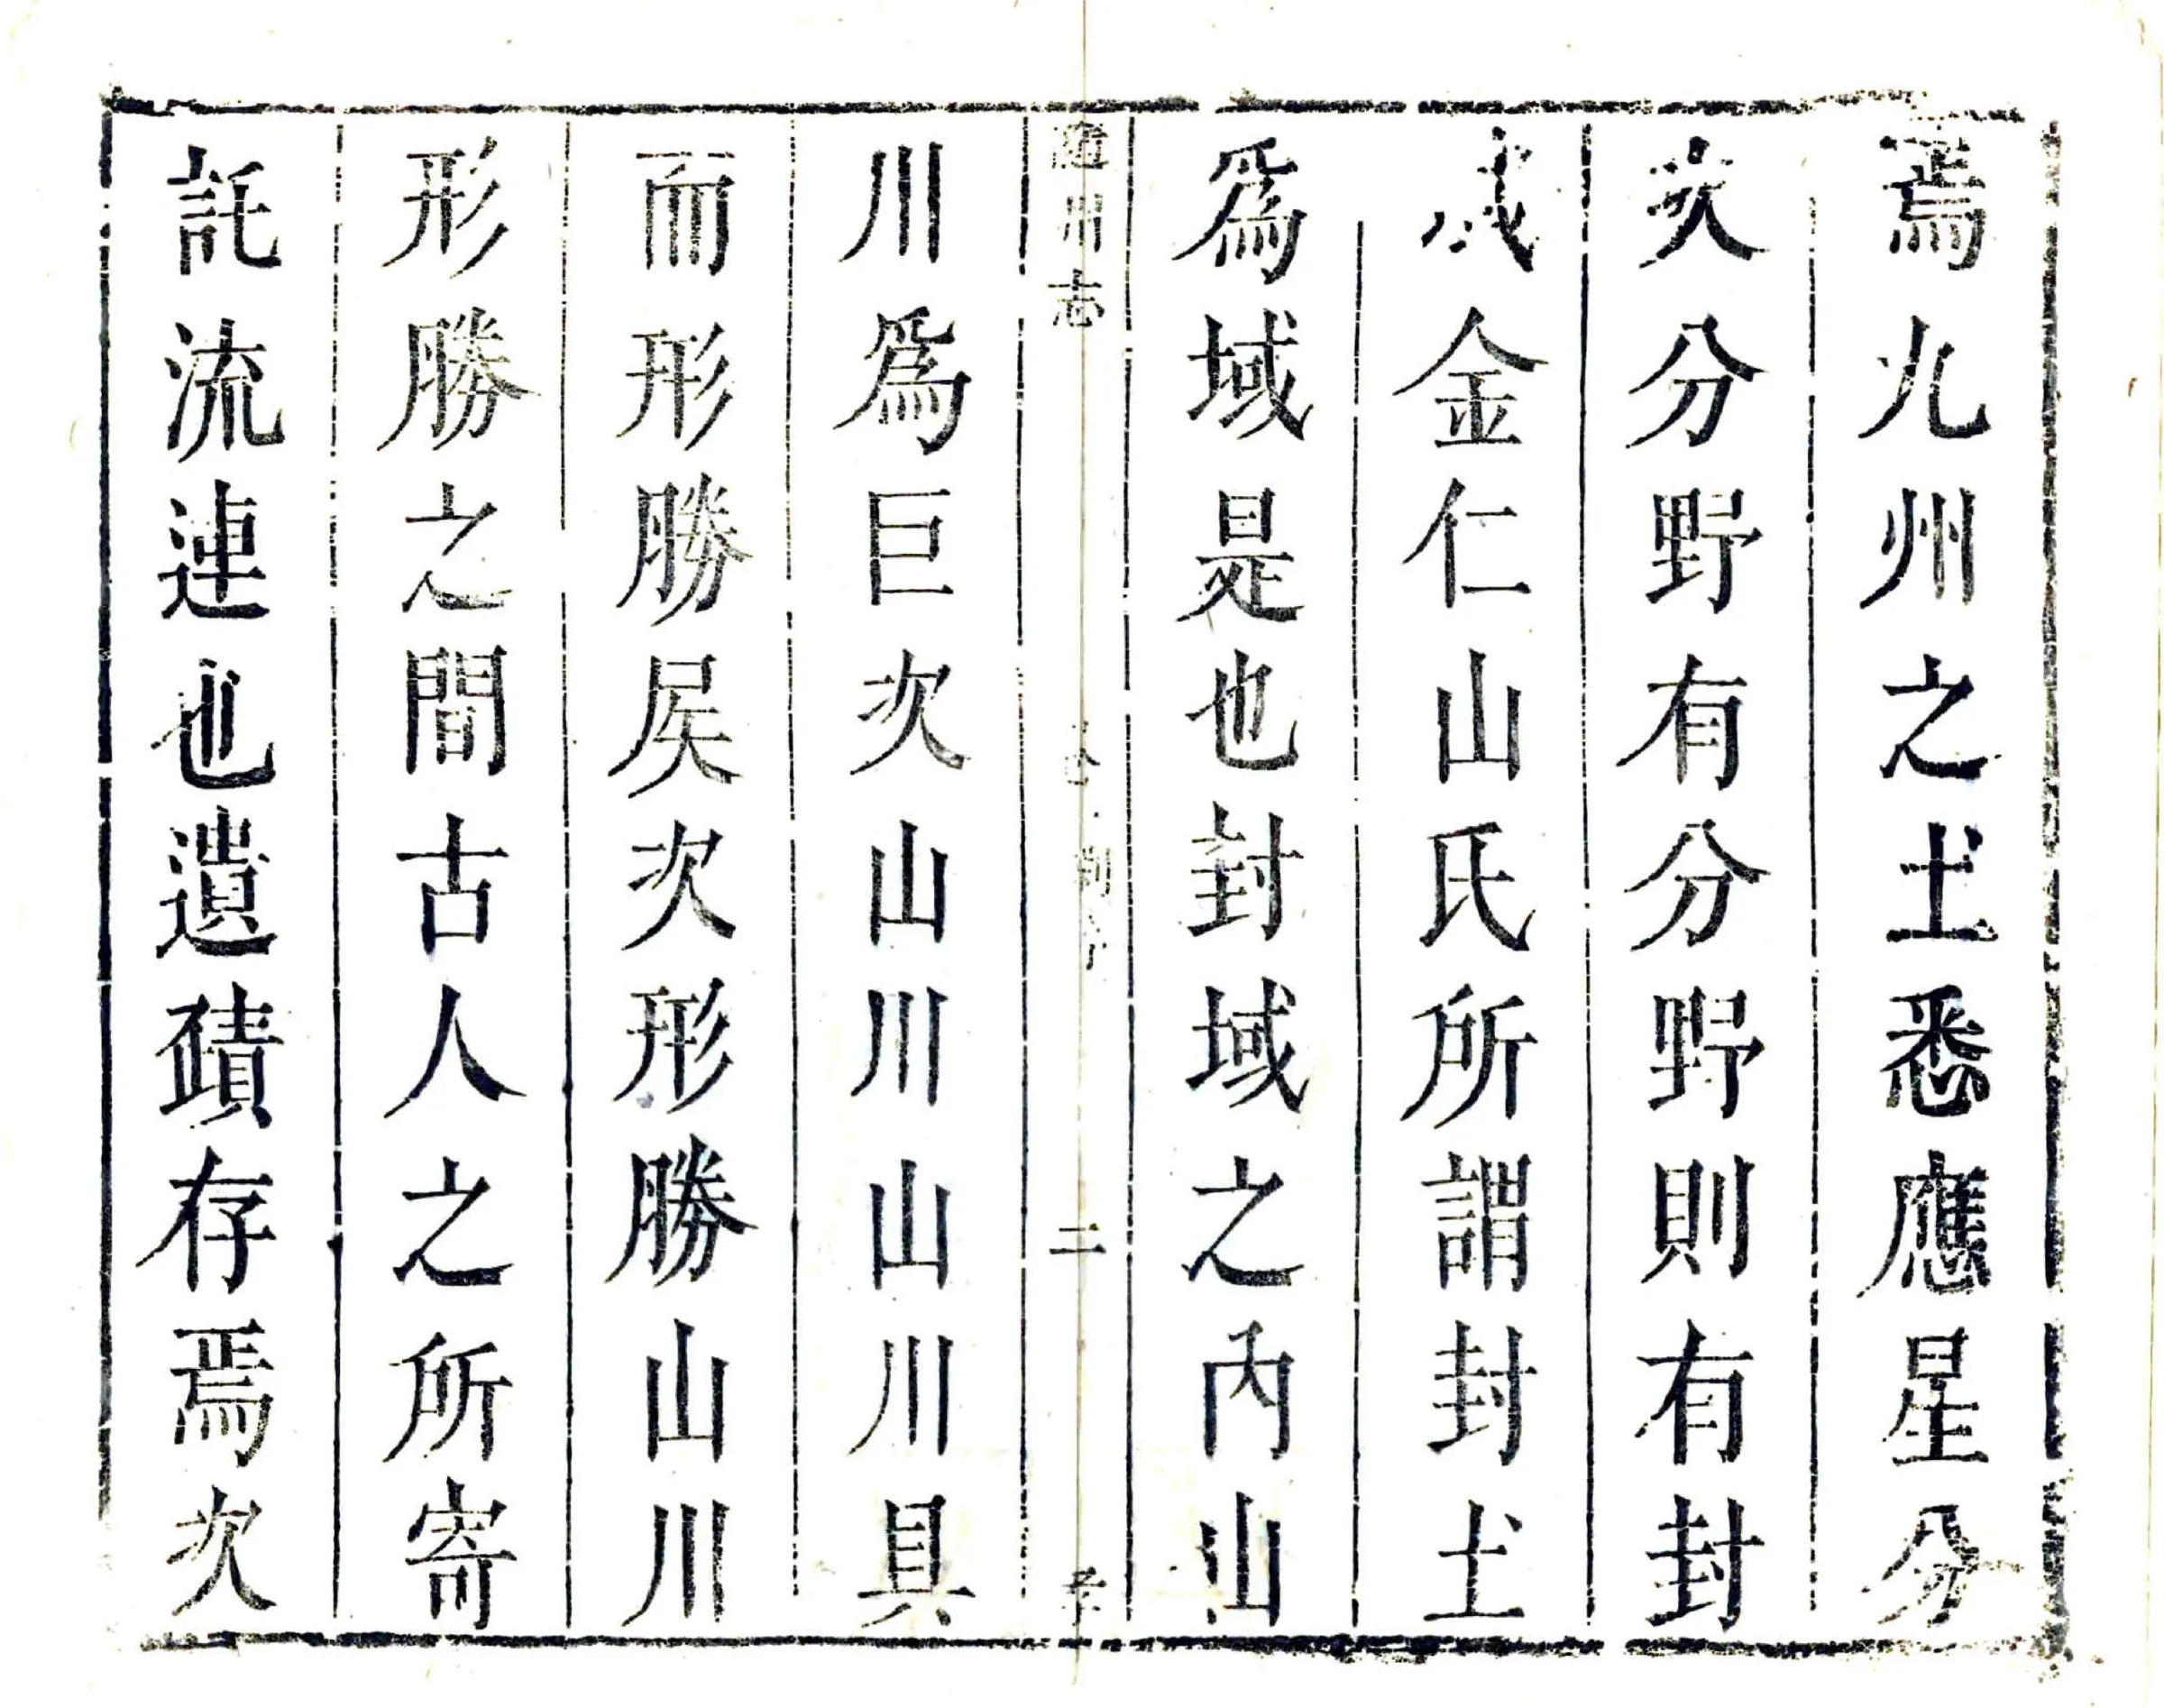 焉九州之土悉應星分
次分野有分野則有封
域金仁山氏所謂封土
爲域是也封域之内山
隨州志
二
川爲巨次山川山川具
而形勝㑨次形勝山川
形勝之間古人之所寄
託流連也遺蹟存焉次